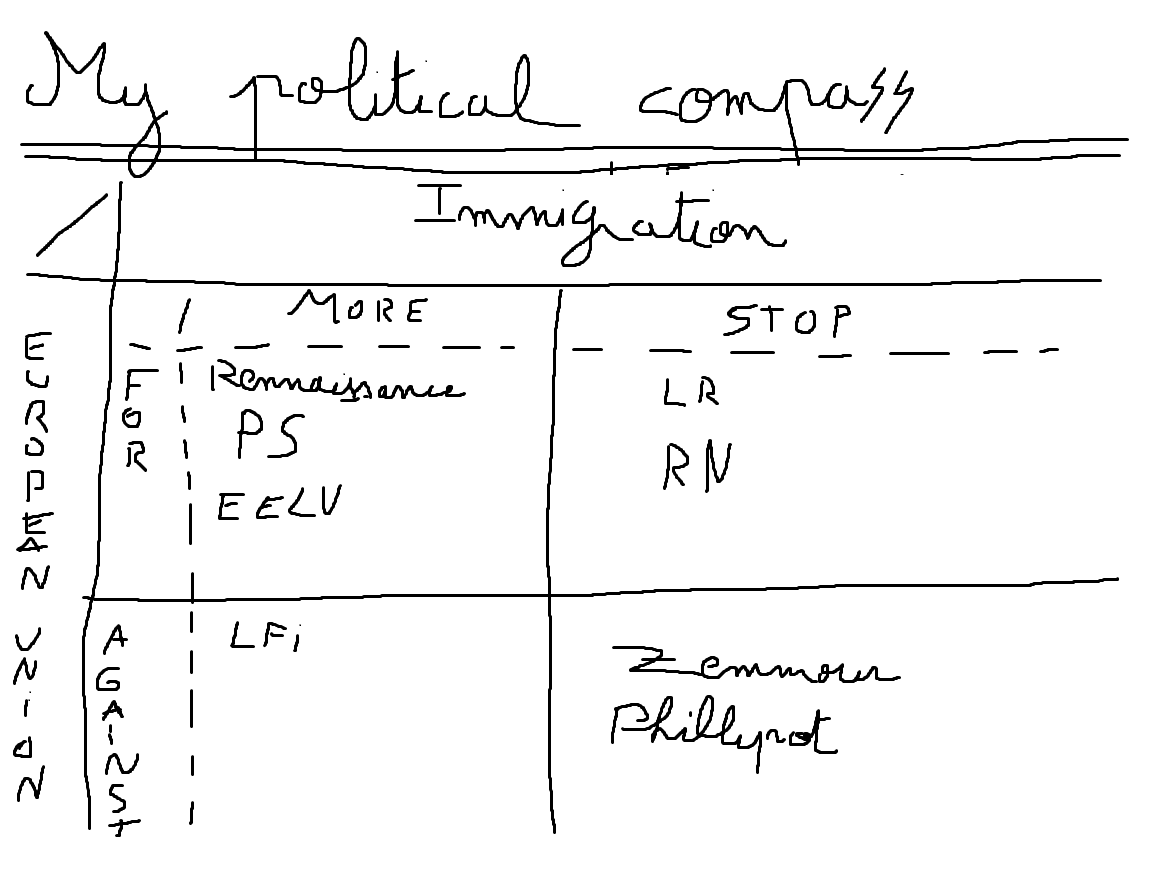 My political compass
Immigration
MORE
STOP
EUROPEAN UNION
FOR
Rennaissance
PS
EELV
LR
RN
AGAINST
LFi
Zemmour
Phillypot